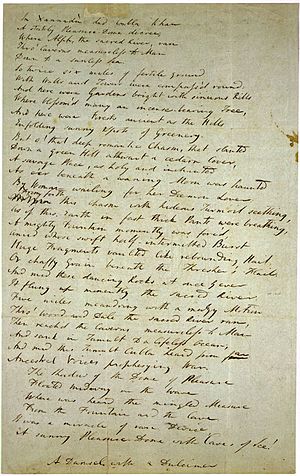 In Xannadù did Cubla Khan
A stately Pleasure-Dome decree;
Where Alph, the sacred River, ran
Thro' Caverns measureless to Man
Down to a sunless Sea.
So twice six miles of fertile ground
With Walls and Towers were compass'd round:
And here were Gardens bright with sinuous Rills
Where blossom'd many an incense-bearing Tree,
And here were Forests ancient as the Hills
Enfolding sunny Spots of Greenery.
But o! that deep romantic Chasm, that slanted
Down a green Hill athwart a cedarn Cover,
A savage Place, as holy and inchanted
As e'er beneath a waning Moon was haunted
By Woman wailing for her Daemon Lover:
From forth this Chasm with hideous Turmoil seething,
As if this Earth in fast thick Pants were breathing,
A mighty Fountain momently was forc'd,
Amid whose swift half-intermitted Burst
Huge Fragments vaulted like rebounding Hail,
Or chaffy Grain beneath the Thresher's Flail.
And mid these dancing Rocks at once & ever
It flung up momently the sacred River.
Five miles meandering with a mazy Motion
Thro' Wood and Dale the sacred River ran,
Then reach'd the Caverns measureless to Man
And sank in Tumult to a lifeless Ocean;
And mid this Tumult Cubla heard from far
Ancestral Voices prophesying War.
The Shadow of the Dome of Pleasure
Floated midway on the Wave
Where was heard the mingled Measure
From the Fountain and the Cave.
It was a miracle of rare Device,
A sunny Pleasure-Dome with Caves of Ice!
A Damsel with a Dulcimer